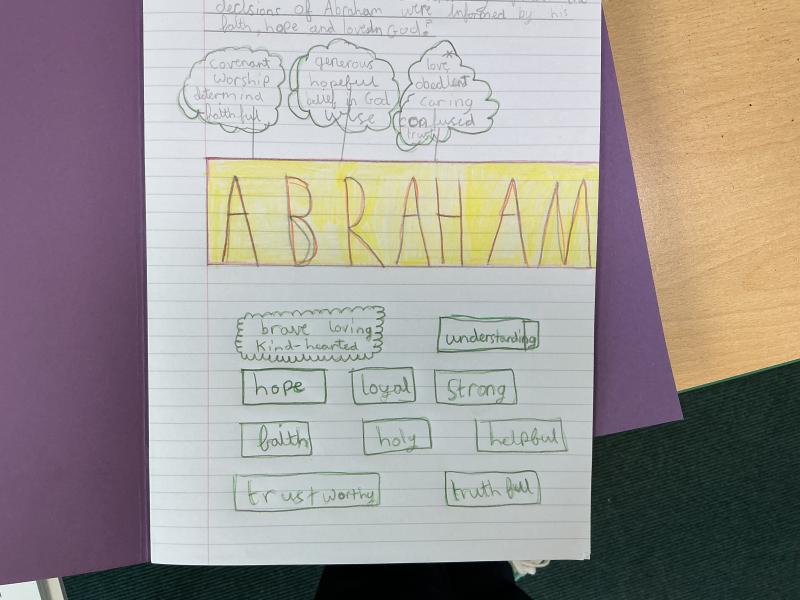 decisions of Abraham were informed by his
faith, hope and love in God?
covenant
worship
determind
faithful
generous
hopeful
belief in God
wise
love
obedient
caring
confused
trust
ABRAHAM
brave loving
kind-hearted
understanding
hope
loyal
strong
faith
holy
helpful
trustworthy
truthfull